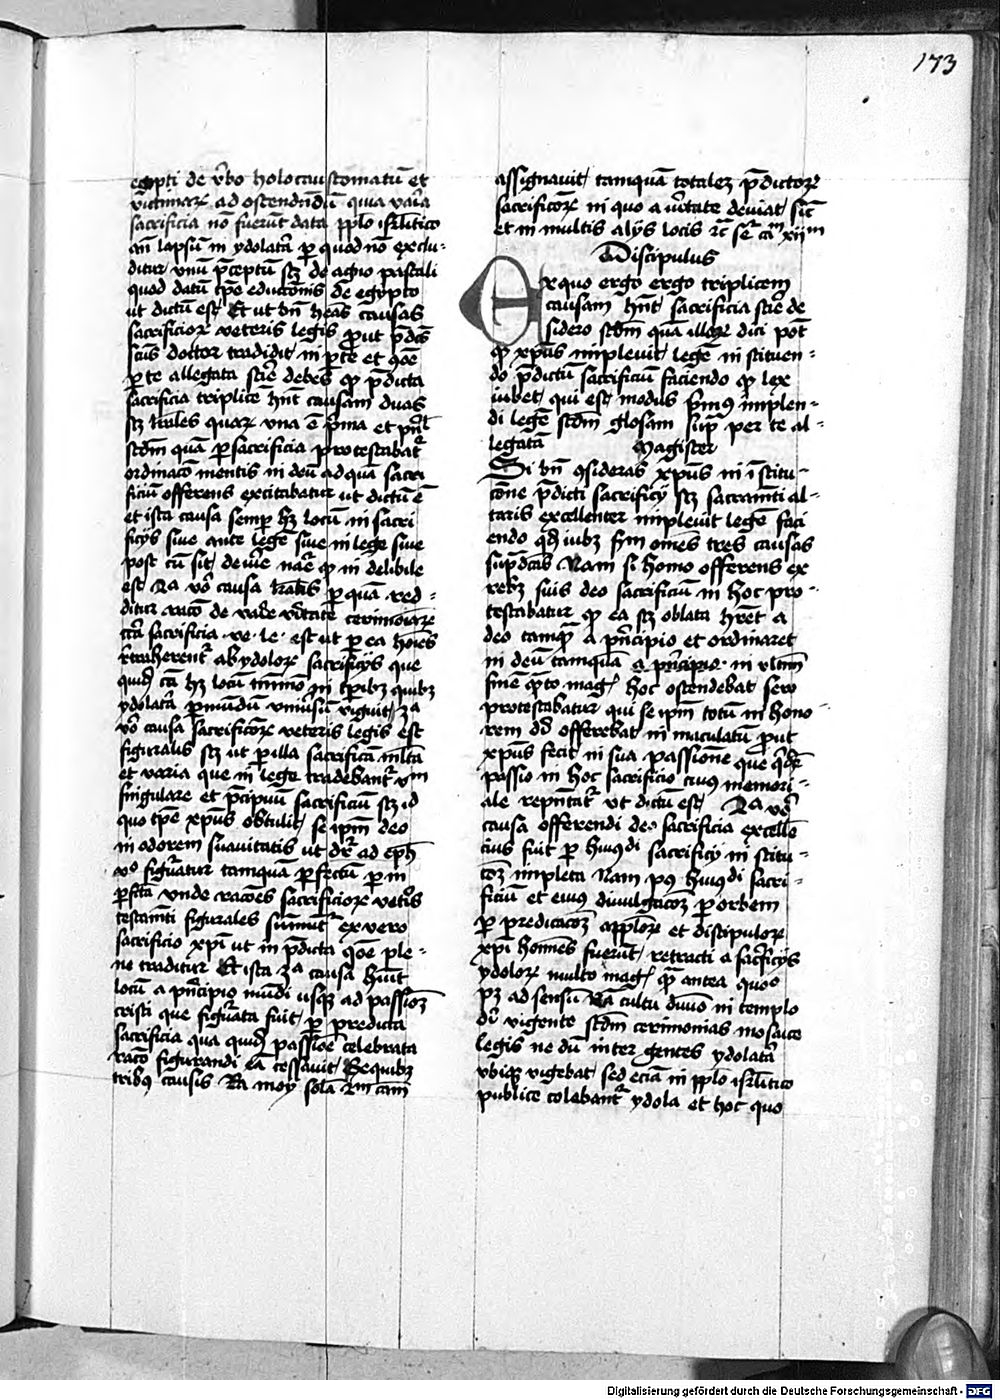 173
egipti de v̄bo holocaustomatū et
victimarꝝ ad ostendendū quia varia
sacrificia nō fuerūt data pplo isrl̄itico
an̄ lapsum in ydolatr̄ ꝑ quod nō exclu-
ditur vnū p̄ceptū scꝫ de agno pascali
quod datū tꝑe educcōnis de egypto
ut dictū est Et ut bn̄ heās causas
sacrificiorꝝ veteris legis ꝓut p̄dc̄s
scūs doctor tradidit in ꝑte et q̄ōe
ꝑ te allegata scire debes ꝙ p̄dicta
sacrificia triplicē hn̄t causam duas
scꝫ lr̄ales quarꝝ vna ē p̄ma et pn̄lꝰ
scdm̄ quā ꝑ sacrificia protestabatᷣ
ordinacō mentis in deū ad quā sacri
ficiū offerens excitabatur ut dictū ē
et ista causa semꝑ hꝫ locū in sacri
ficijs siue ante legē siue in lege siue
post cū sit de iure nat̄e ꝙ in delibile
est 2a vō causa lr̄alis ꝑ quā red-
ditur racō de varietate cerimoniarꝝ
circa sacrificia . ve . le . est ut ꝑ ea hoīes
retraherentᷣ ab ydolorꝝ sacrificijs que
quidē cā hꝫ locū in tꝑibꝫ quibꝫ
ydolatr̄ ꝑ mūdū vniūsū viguit 3a
vō causa sacrificiorꝝ veteris legis est
figuralis scꝫ ut ꝑ illa sacrificia ml̄ta
et varia que in lege tradebantᷣ vnū
singulare et p̄cipuū sacrificiū scꝫ id
quo tꝑe xp̄us obtulit se ip̄m deo
in odorem suauitatis ut dr̄ ad eph̄
vᵒ figuratur tamquā ꝑfectū ꝑ in
ꝑfcā vnde racōes sacrificiorꝝ vetis
testam̄ti figurales sumūtᷣ ex vero
sacrificio xp̄i ut in p̄dicta q̄ōe ple-
ne traditur Et ista 3a causa hūit
locū a pn̄cipio mūdi usqꝫ ad passioꝫ
cristi que figurata fuit ꝑ predicta
sacrificia qua quidē passiōe celebrata
racō figurandi eā cessauit De quibꝫ
tribꝰ causis Ra moy sola 2m cām
assignauit tamquā totalē p̄dictorꝝ
sacrificiorꝝ in quo a v̄itate deuiat sic̄
et in multis alijs locis rc̄ se cā xiiᵐ
Discipulus
Ex quo ergo ergo triplicem
causam hn̄t sacrificia scire de
sidero scdm̄ quā illorꝝ dici pot̄
ꝙ xp̄us impleuit legē in stituen-
do p̄dictū sacrificiū faciendo ꝙ lex
iubet qui est modus p̄mꝰ implen-
di legē scdm̄ glosam supͣ per te al-
legatā Magister
Si bn̄ ꝯsideras xp̄us in ī stitu-
cōne p̄dicti sacrificij scꝫ sacram̄ti al-
taris excellenter impleuit legē faci
endo qd̄ iubꝫ s̄m om̄es tres causas
sup̄dc̄as Nam si homo offerens ex
rebꝫ suis deo sacrificiū in hoc pro-
testabatur ꝙ ea scꝫ oblata hr̄et a
deo tamqͣ a pn̄cipio et ordinaret
in deū tamquā a pn̄cipio in vltim̄
finē qͣto magꝭ hoc ostendebat seu
protestabatur qui se ip̄m totū in hono-
rem dei offerebat in maculatū ꝓut
xp̄us fecit in sua passione que qͥdē
passio in hoc sacrificio cuius memori-
ale repn̄tatᷣ ut dictū est 2a vō
causa offerendi deo sacrificia excellē
cius fuit ꝑ huiꝰdi sacrificij in stitu-
coꝫ impleta Nam pꝰ huiꝰdi sacri-
ficiū et eius diuulgacoꝫ ꝑ orbem
ꝑ predicacoꝫ appl̄orꝝ et discipulorꝝ
xp̄i homīes fuerūt retracti a sacͥficijs
ydolorꝝ multo magꝭ qͣ antea quoꝰ
pꝫ ad sensū Nā cultu diuīo in templo
dei vigente scdm̄ cerimonias mosaice
legis ne dū inter gentes ydolatr̄
vbiqꝫ vigebat sed eciā in pplo isrl̄itico
publice colebantᷣ ydola et hoc quo
Digitalisierung gefördert durch die Deutsche Forschungsgemeinschaft - DFG